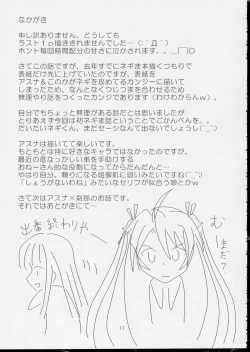 なかがき
申し訳ありません。どうしても
ラスト１ｐ描ききれませんでした…(;´Д｀)
ホント毎回時間配分のせきに泣かされます。。＿|￣|○
さてこの話ですが、去年すでにネギま本描くつもりで
表紙だけ先に上げていたのですが、表紙を
アスナ＆このかでネギを攻めてるカンジーに描いて
しまったため、なんとなくつじつまをつわせるため
無理やり話をつくったカンジであります(わけわからんｗ)。
自分でもちょっと無理がある話だとは思いましたが
とりあえず今回は初ネギま話ということでごかんべんを。。
だいたいネギくん、まだセーシなんて出ないでしょうし(^_^;)
アスナは描いてて楽しいです。
もともとは特に好きなキャラではなかったのですが、
最近の危なっかしい弟を手助けする
おねーさん的な役割になってきてからだんだんと…
やはり自分、頼りになる姐御肌に弱いみたいですね(^_^;)
「しょうがないわね」みたいなセリフが似合う娘とかｗ
さて次はアスナ×刹那のお話です。
それではあとがきにて…
出番終わりゃ
むほまだ
17